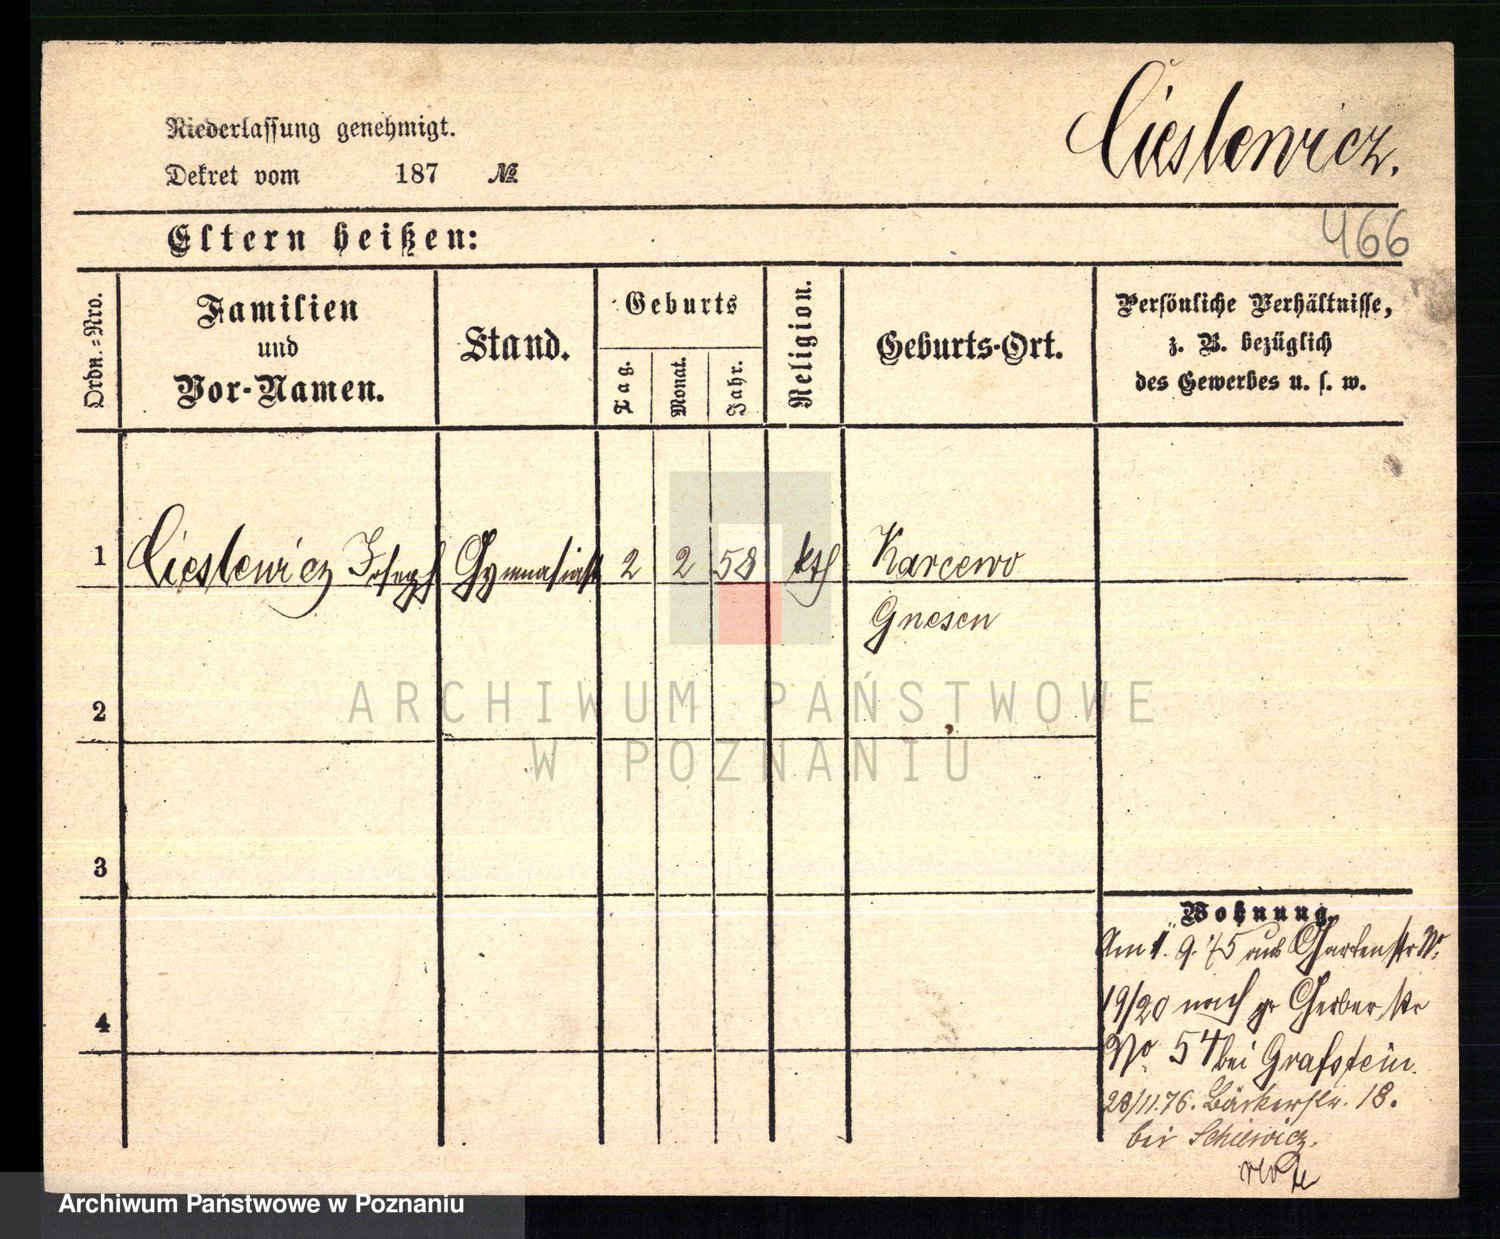 Niederlassung genehmigt.
Dekret vom 187 №
Cieslewicz.
466
Eltern heißen:
Ordn.-Nro.
Familien
und
Vor-Namen.
Stand.
Geburts
Tag.
Monat.
Jahr.
Religion.
Geburts-Ort.
Persönliche Verhältnisse,
z. B. bezüglich
des Gewerbes u. s. w.
1 Cieslewicz Joseph Gymnasiast 2 2 58 kth Karcewo
Gnesen
2
3
4
Wohnung.
Am 1. 9. 75 aus Gartenstr No
19/20 nach gr Gerberstr
No 54 bei Grafstein.
28/11.76. Bäckerstr. 18.
bei Schiewicz.
ARCHIWUM PAŃSTWOWE
W POZNANIU
Archiwum Państwowe w Poznaniu